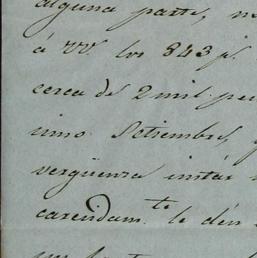 alguna parte,
á VV. los 843 p.
cerca de 2 mil pe
imo Setiembre,
vergüenza instar
carendam.te le den